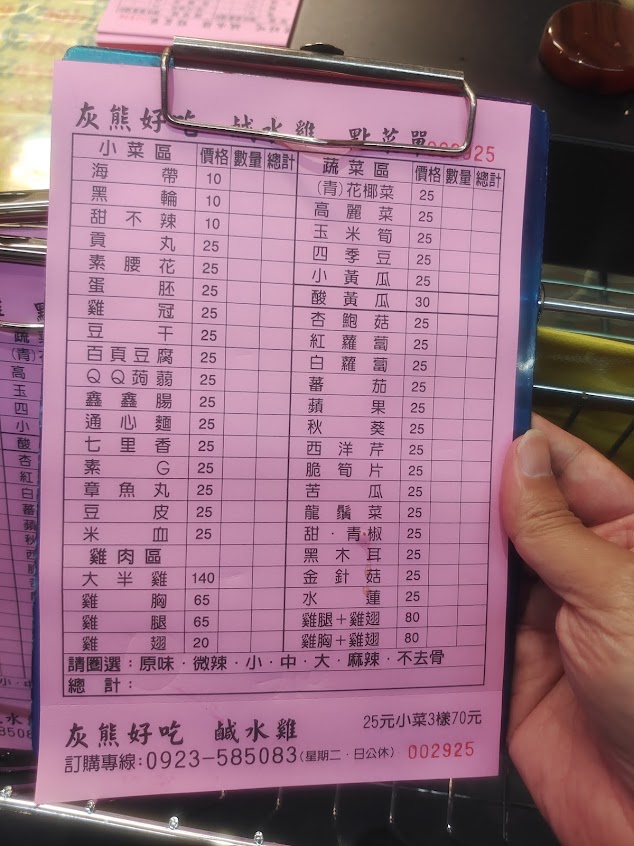 灰熊好吃 鹹水雞 點菜單
002925
小菜區 價格 數量 總計
海帶 10
黑輪 10
甜不辣 10
貢丸 25
素腰花 25
蛋胚 25
雞冠 25
豆干 25
百頁豆腐 25
QQ蒟蒻 25
鑫鑫腸 25
通心麵 25
七里香 25
素G 25
章魚丸 25
豆皮 25
米血 25
雞肉區
大半雞 140
雞胸 65
雞腿 65
雞翅 20
蔬菜區 價格 數量 總計
(青)花椰菜 25
高麗菜 25
玉米筍 25
四季豆 25
小黃瓜 25
酸黃瓜 30
杏鮑菇 25
紅蘿蔔 25
白蘿蔔 25
蕃茄 25
蘋果 25
秋葵 25
西洋芹 25
脆筍片 25
苦瓜 25
龍鬚菜 25
甜·青·椒 25
黑木耳 25
金針菇 25
水蓮 25
雞腿+雞翅 80
雞胸+雞翅 80
請圈選:原味·微辣·小·中·大·麻辣·不去骨
總計:
灰熊好吃 鹹水雞 25元小菜3樣70元
訂購專線:0923-585083(星期二·日公休) 002925